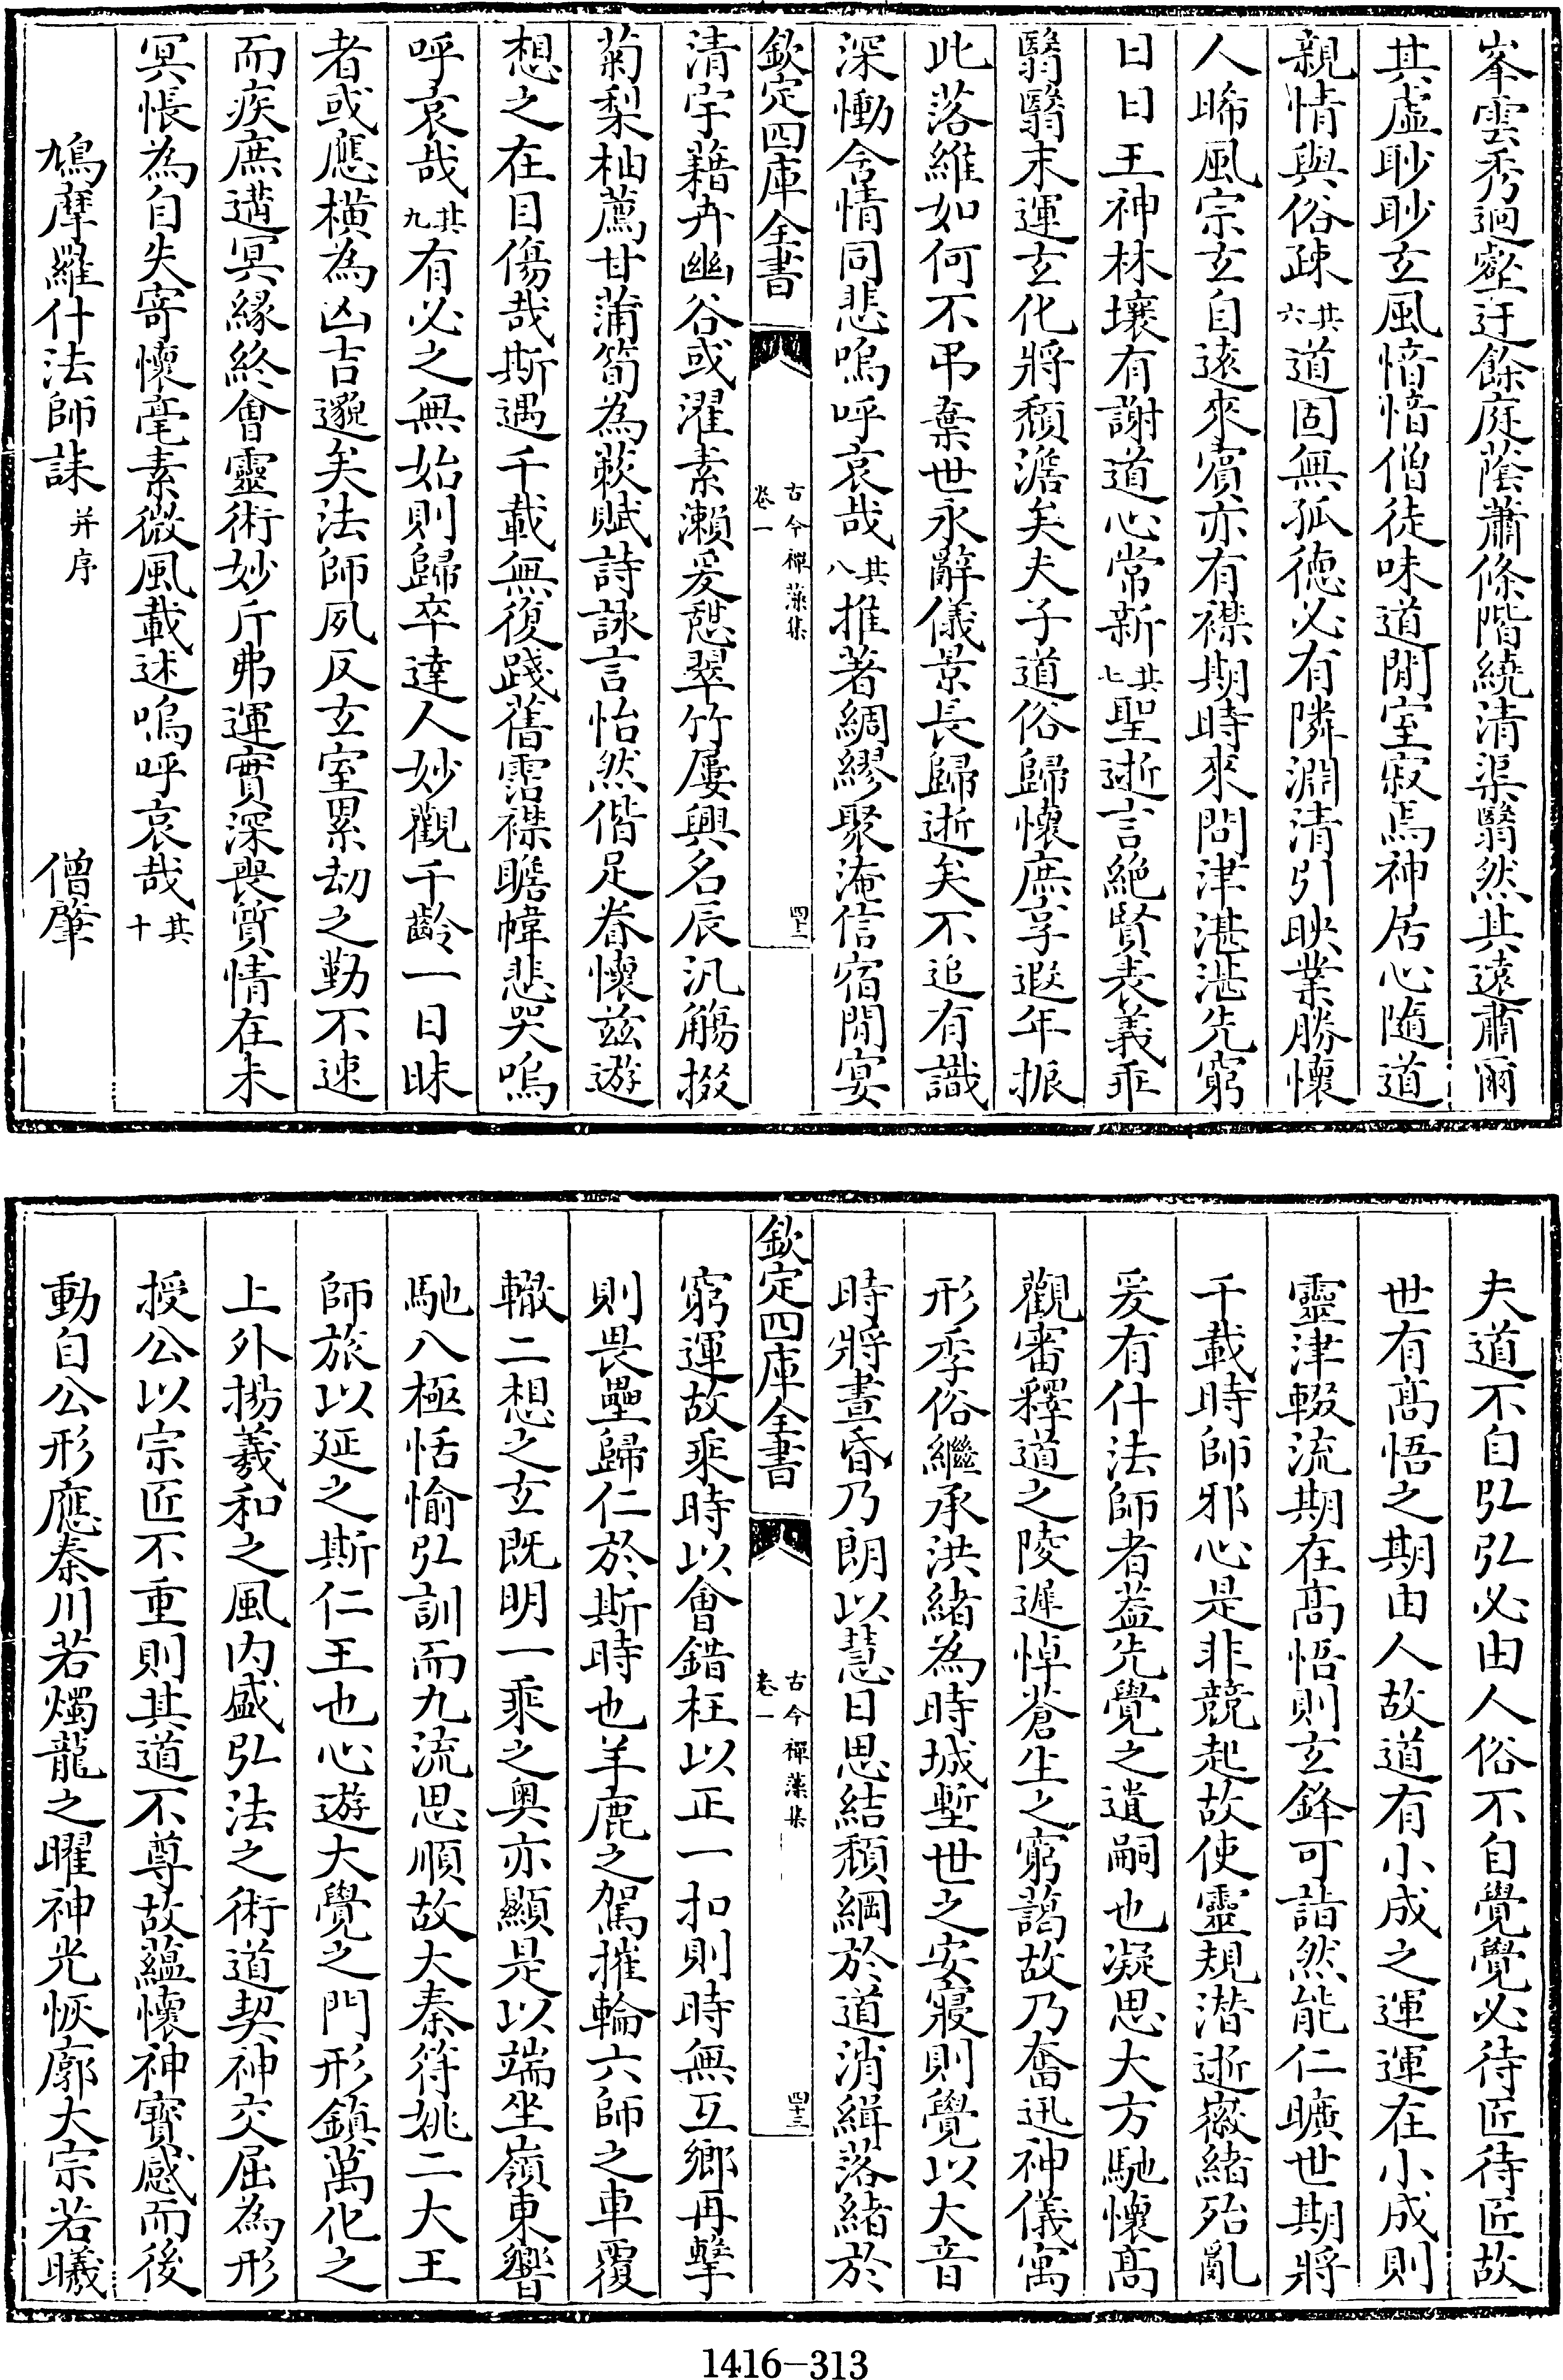 峯雲秀迥壑迂餘庭蔭蕭條階繞清渠翳然其遠肅爾
其虚眇眇玄風愔愔僧徒味道閒室寂焉神居心隨道
親情與俗疎其六道固無孤徳必有隣淵清引映業勝懷
人晞風宗玄自遠來賔亦有襟期時來問津湛湛先窮
日日王神林壤有謝道心常新其七聖逝言絶賢表義乖
翳翳末運玄化將頽澹矣夫子道俗歸懷庶享遐年振
此落維如何不弔棄世永辭儀景長歸逝矣不追有識
深慟含情同悲嗚呼哀哉其八推著綢繆聚淹信宿閒宴
欽定四庫全書
古今禪藻集
卷一
四十二
清宇藉卉幽谷或濯素瀨爰憇翠竹屢興名辰汎觴掇
菊梨柚薦甘蒲筍為蔌賦詩詠言怡然偕足眷懷兹遊
想之在目傷哉斯遇千載無復踐舊霑襟瞻幃悲哭嗚
呼哀哉其九有必之無始則歸卒達人妙觀千齡一日昧
者或應横為凶吉邈矣法師夙反玄室累劫之勤不速
而疾庶遘冥縁終會靈術妙斤弗運實深喪質情在未
冥悵為自失寄懷毫素微風載述嗚呼哀哉其十
鳩摩羅什法師誄并序 僧肇
夫道不自弘弘必由人俗不自覺覺必待匠待匠故
世有髙悟之期由人故道有小成之運運在小成則
靈津輟流期在髙悟則玄鋒可詣然能仁曠世期將
千載時師邪心是非競起故使靈規潛逝徽緒殆亂
爰有什法師者葢先覺之遺嗣也凝思大方馳懷髙
觀審釋道之陵遲悼蒼生之窮藹故乃奮迅神儀寓
形季俗繼承洪緒為時城塹世之安寢則覺以大音
時將晝昏乃朗以慧日思結頽綱於道消緝落緒於
欽定四庫全書
古今禪藻集
卷一
四十三
窮運故乘時以會錯枉以正一扣則時無互鄉再擊
則畏壘歸仁於斯時也羊鹿之駕摧輪六師之車覆
轍二想之玄既明一乘之奥亦顯是以端坐嶺東響
馳八極恬愉弘訓而九流思順故大秦符姚二大王
師旅以延之斯仁王也心遊大覺之門形鎮萬化之
上外揚羲和之風内盛弘法之術道契神交屈為形
授公以宗匠不重則其道不尊故藴懷神寳感而後
動自公形應秦川若燭龍之曜神光恢廓大宗若曦
1416-313